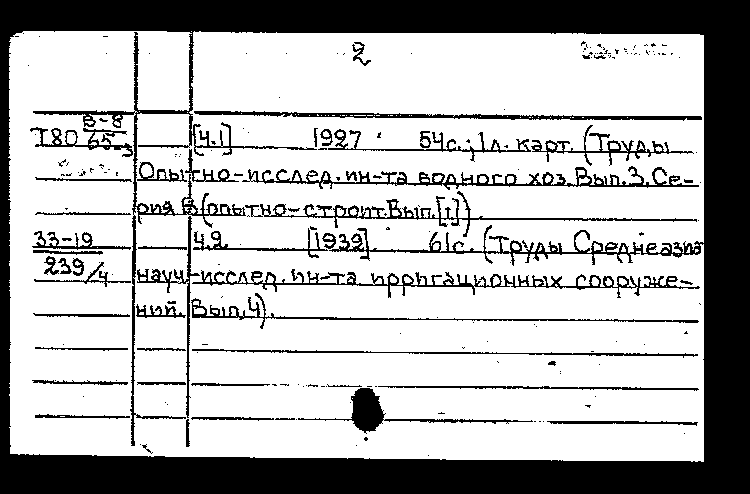 2
В-8
Т80 65-3 [ч.1] 1927 54с.; 1л. карт. (Труды
Опытно-исслед. ин-та водного хоз. Вып. 3. Се-
рия В (опытно-строит. Вып. [1]).
33-19 ч.2. [1939]. 61с. (Труды Среднеазиа
239/4 науч.-исслед. ин-та ирригационных сооруже-
ний. Вып. 4).